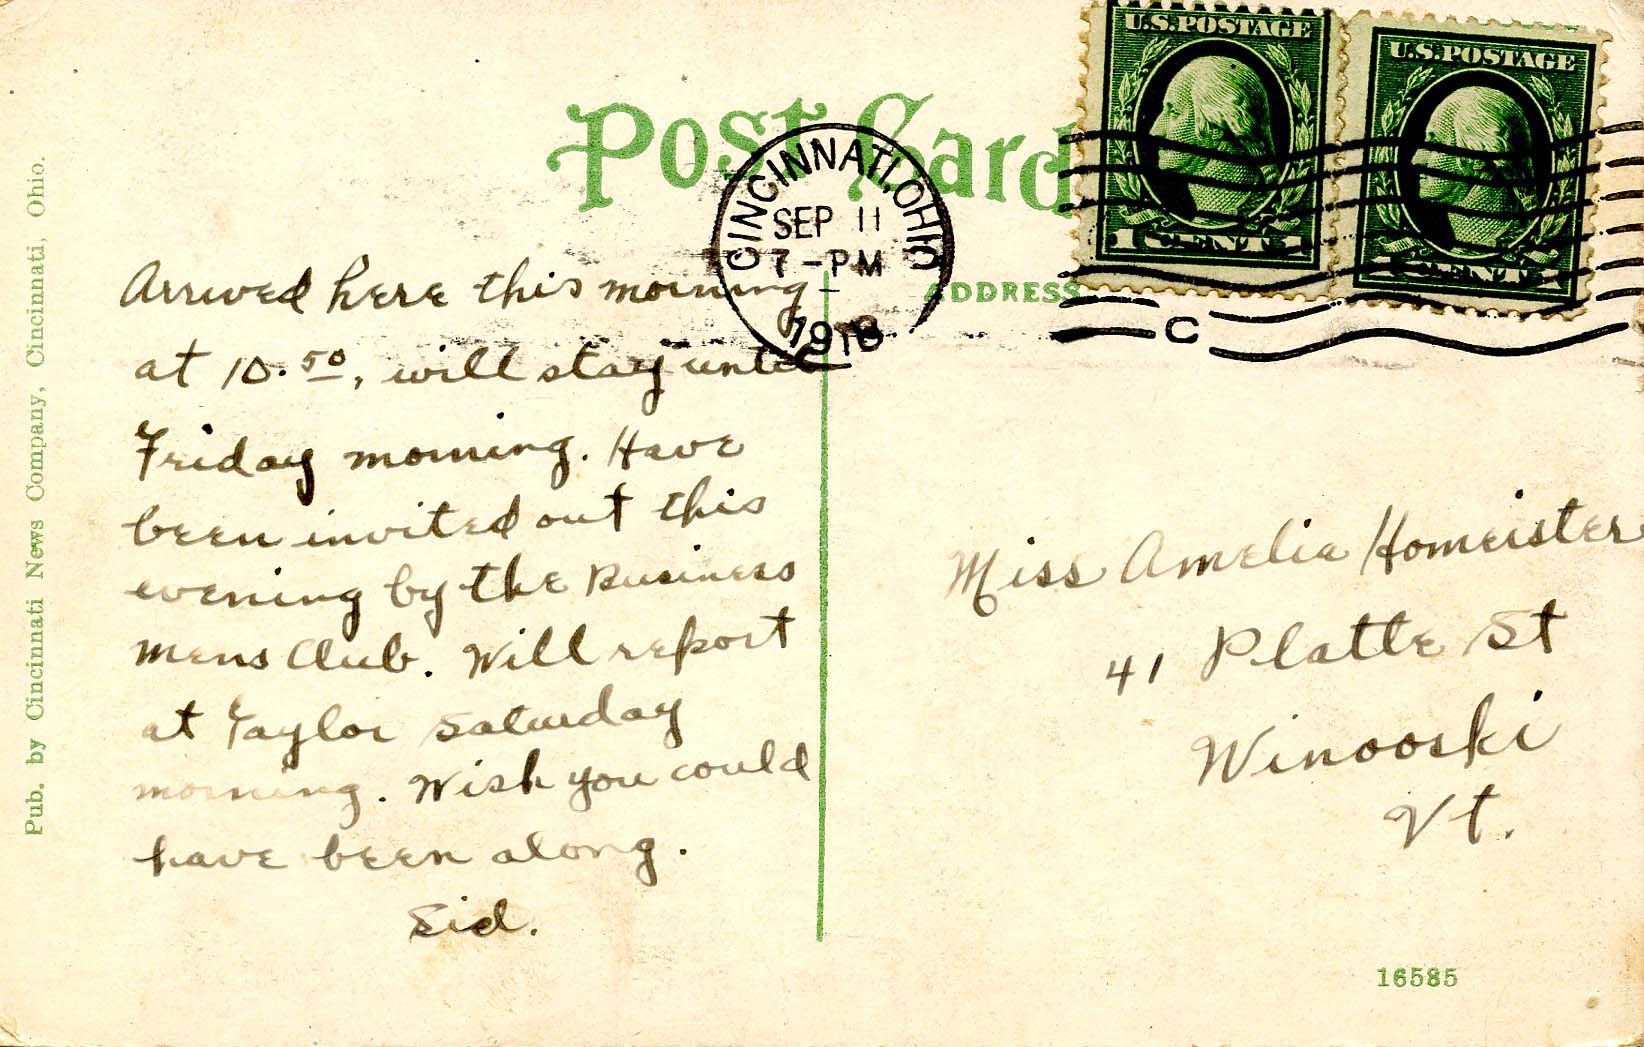 Post Card
U.S. POSTAGE
1 CENT 1
U.S. POSTAGE
CENT
CINCINNATI, OHIO
SEP 11
7-PM
1918
C
ADDRESS
Arrived here this morning
at 10.50, will stay until
Friday morning. Have
been invited out this
evening by the Business
Mens Club. Will report
at Taylor Saturday
morning. Wish you could
have been along.
Sid.
Miss Amelia Homeister
41 Platte St
Winooski
Vt.
16585
Pub. by Cincinnati News Company, Cincinnati, Ohio.